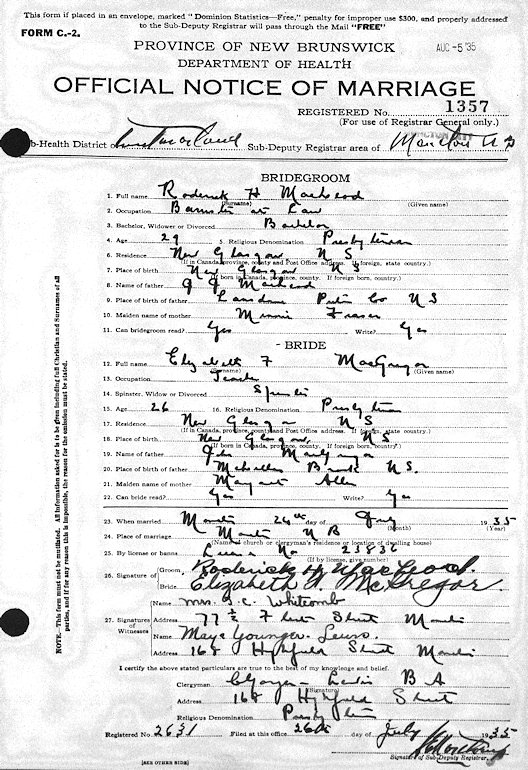 This form if placed in an envelope, marked "Dominion Statistics—Free," penalty for improper use $300, and properly addressed
to the Sub-Deputy Registrar will pass through the Mail "FREE"
FORM C.-2.
PROVINCE OF NEW BRUNSWICK AUG -5 '35
DEPARTMENT OF HEALTH
OFFICIAL NOTICE OF MARRIAGE
REGISTERED No. 1357
(For use of Registrar General only.)
b-Health District of Westmorland Sub-Deputy Registrar area of Moncton N B
BRIDEGROOM
1. Full name Roderick H MacLeod
(Surname) (Given name)
2. Occupation Barrister at Law
3. Bachelor, Widower or Divorced Bachelor
4. Age 29 5. Religious Denomination Presbyterian
6. Residence New Glasgow N S
(If in Canada, province, county and Post Office address. If foreign, state country.)
7. Place of birth New Glasgow N S
(If born in Canada, province, county. If foreign born, country.)
8. Name of father MacLeod
9. Place of birth of father Lansdowne Pictou Co N S
10. Maiden name of mother Minnie Fraser
11. Can bridegroom read? Yes Write? Yes
- BRIDE
12. Full name Elizabeth F MacGregor
(Surname) (Given name)
13. Occupation Teacher
14. Spinster, Widow or Divorced Spinster
15. Age 26 16. Religious Denomination Presbyterian
17. Residence New Glasgow N S
(If in Canada, province, county and Post Office address. If foreign, state country.)
18. Place of birth New Glasgow N S
(If born in Canada, province, county. If foreign born, country.)
19. Name of father MacGregor
20. Place of birth of father N S.
21. Maiden name of mother Margaret Allen
22. Can bride read? Yes Write? Yes
23. When married 26th day of July 1935
(Month) (Year)
24. Place of marriage Moncton N B
(Name church or clergyman's residence or location of dwelling house)
25. By license or banns License No 23836
(If by license, give number)
26. Signature of Groom, Roderick H. MacLeod.
Bride Elizabeth F. McGregor.
27. Signatures of Witnesses
Name Mrs. Whitcomb
Address 77 1/2 Street Moncton
Name Maye Younger Lewis.
Address 168 Highfield Street Moncton
I certify the above stated particulars are true to the best of my knowledge and belief.
Clergyman B A
(Signature)
Address 168 Highfield Street
Religious Denomination Presbyterian
Registered No. 2631 Filed at this office 26th day of July 1935
Signature of Sub-Deputy Registrar.
[SEE OTHER SIDE]
NOTE.—This form must not be mutilated. All information asked for is to be given including full Christian and Surname of all
parties, and if for any reason this is impossible, the reason for the omission must be stated.